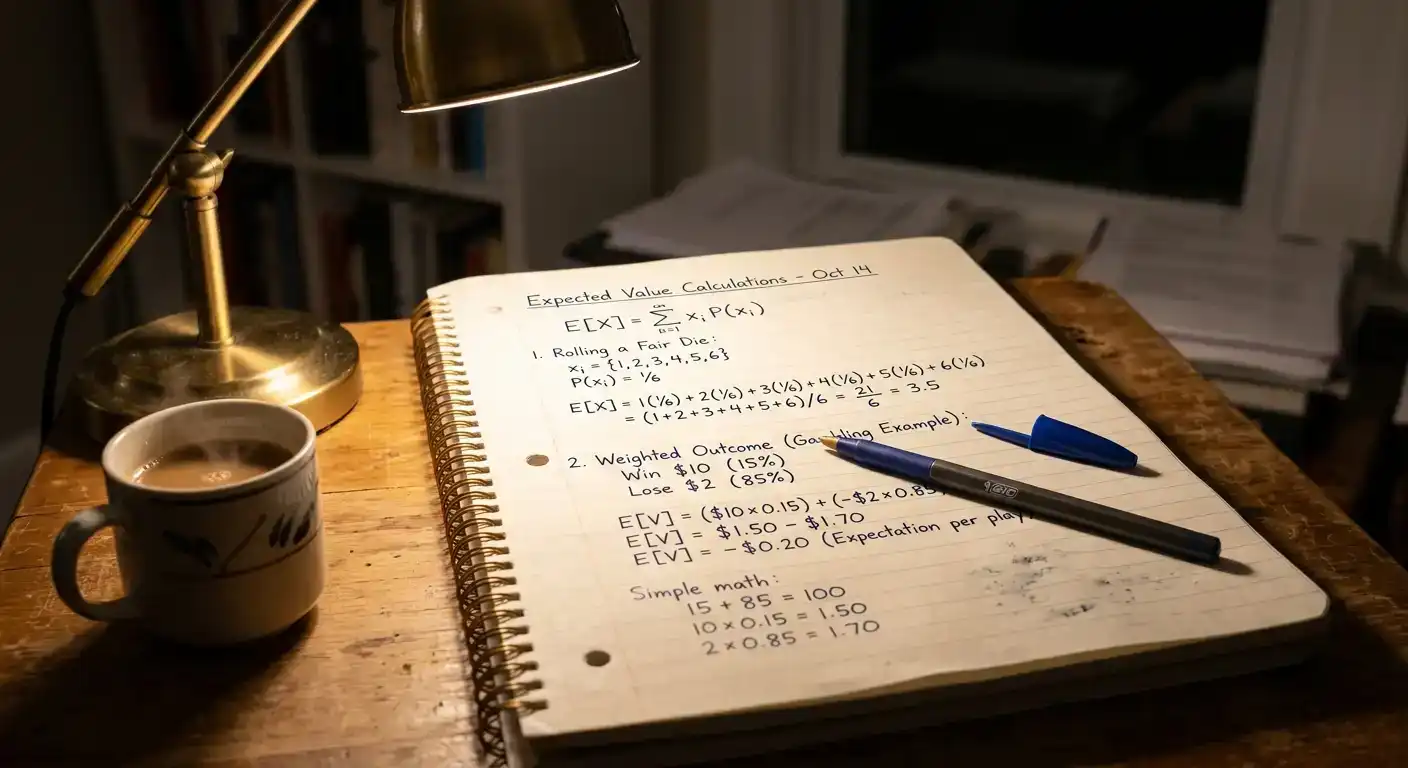 Expected Value Calculations - Oct 14
E[X] = ∑ xᵢ P(xᵢ)
1. Rolling a Fair Die:
xᵢ = {1,2,3,4,5,6}
P(xᵢ) = 1/6
E[X] = 1(1/6) + 2(1/6) + 3(1/6) + 4(1/6) + 5(1/6) + 6(1/6)
= (1+2+3+4+5+6)/6 = 21/6 = 3.5
2. Weighted Outcome (Example):
Win $10 (15%)
Lose $2 (85%)
E[V] = ($10×0.15) + (-$2×0.85
E[V] = $1.50 - $1.70
E[V] = -$0.20 (Expectation per play
Simple math:
15 + 85 = 100
10 × 0.15 = 1.50
2 × 0.85 = 1.70
BIC